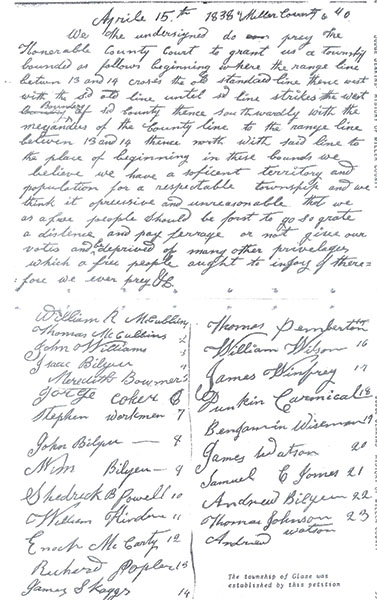 Aprile 15th 1838 "Miller County" 6 40
We the undersigned do prey the
Honerable County Court to grant us a township
bounded as follows beginning where the range line
betwen 13 and 14 croses the old standard line thence west
with the sd old line until sd line strikes the west
Boundry of sd county thence southwardly with the
meganders of the County line to the range line
betwen 13 and 14 thence north with said line to
the place of beginning in these bounds we
believe we have a soficent territory and
population for a respectable township and we
think it opressive and unreasonable that we
as a free people should be forst to go so grate
a distence and pay ferrage or not give our
votes and be deprived of many other priveleges
which a free people aught to injoy &
there=
fore we ever prey &c
William R McCubbin
Thomas McCubbins 2
John Williams 3
Isaac Bilyeu 4
Meredith Bowmer 5
George Coker 6
Stephen workmen 7
John Bilyeu — 8
Wm Bilyeu — 9
Shedreck B Lowell 10
William Hinden 11
Enoch McCarty 12
Richard Popler 13
James Skaggs 14
Thomas Pemberton
William Wilson 16
James Winfrey 17
Dunkin Carmical 18
Benjamin Wiseman 19
James Watson 20
Samuel C Jomes 21
Andrew Bilyeu 22
Thomas Johnson 23
Andrew watson
The township of Glaze was
established by this petition